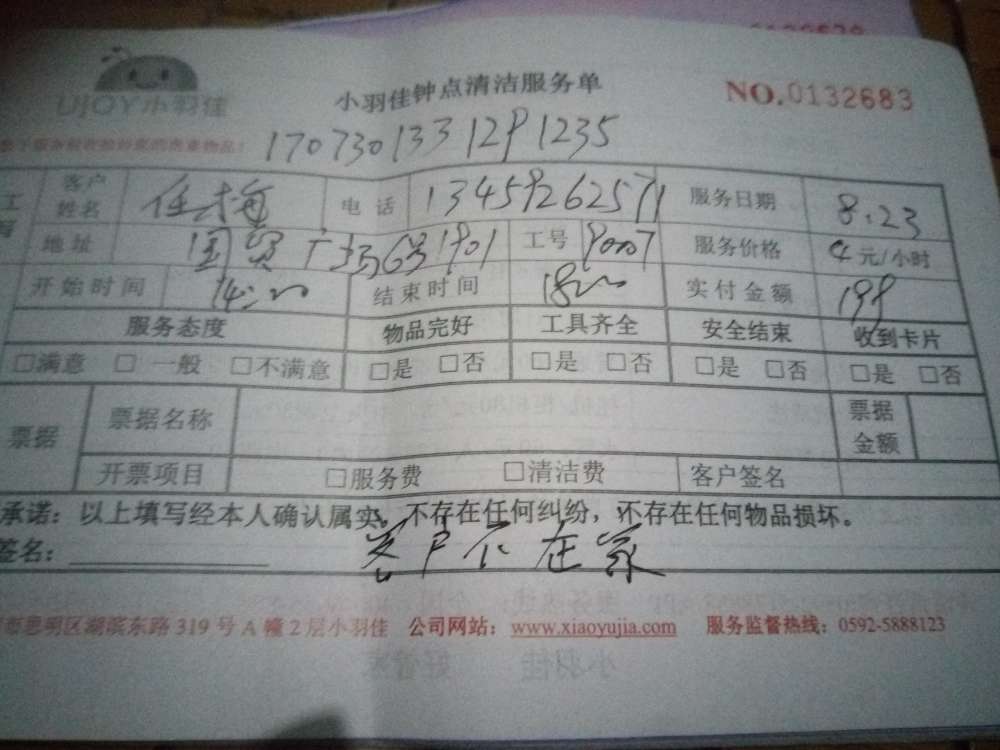 UJOY小羽佳
小羽佳钟点清洁服务单
NO.0132683
1707301331291235
客户姓名 任梅 电话 13459262571 服务日期 8.23
地址 国贸广场6号1901 工号 90007 服务价格 4元/小时
开始时间 14:00 结束时间 18:00 实付金额 199
服务态度 物品完好 工具齐全 安全结束 收到卡片
□满意 □一般 □不满意 □是 □否 □是 □否 □是 □否 □是 □否
票据 票据名称 票据金额
开票项目 □服务费 □清洁费 客户签名
承诺：以上填写经本人确认属实。不存在任何纠纷，不存在任何物品损坏。
签名： 客户不在家
思明区湖滨东路319号A幢2层小羽佳 公司网站：www.xiaoyujia.com 服务监督热线：0592-5888123